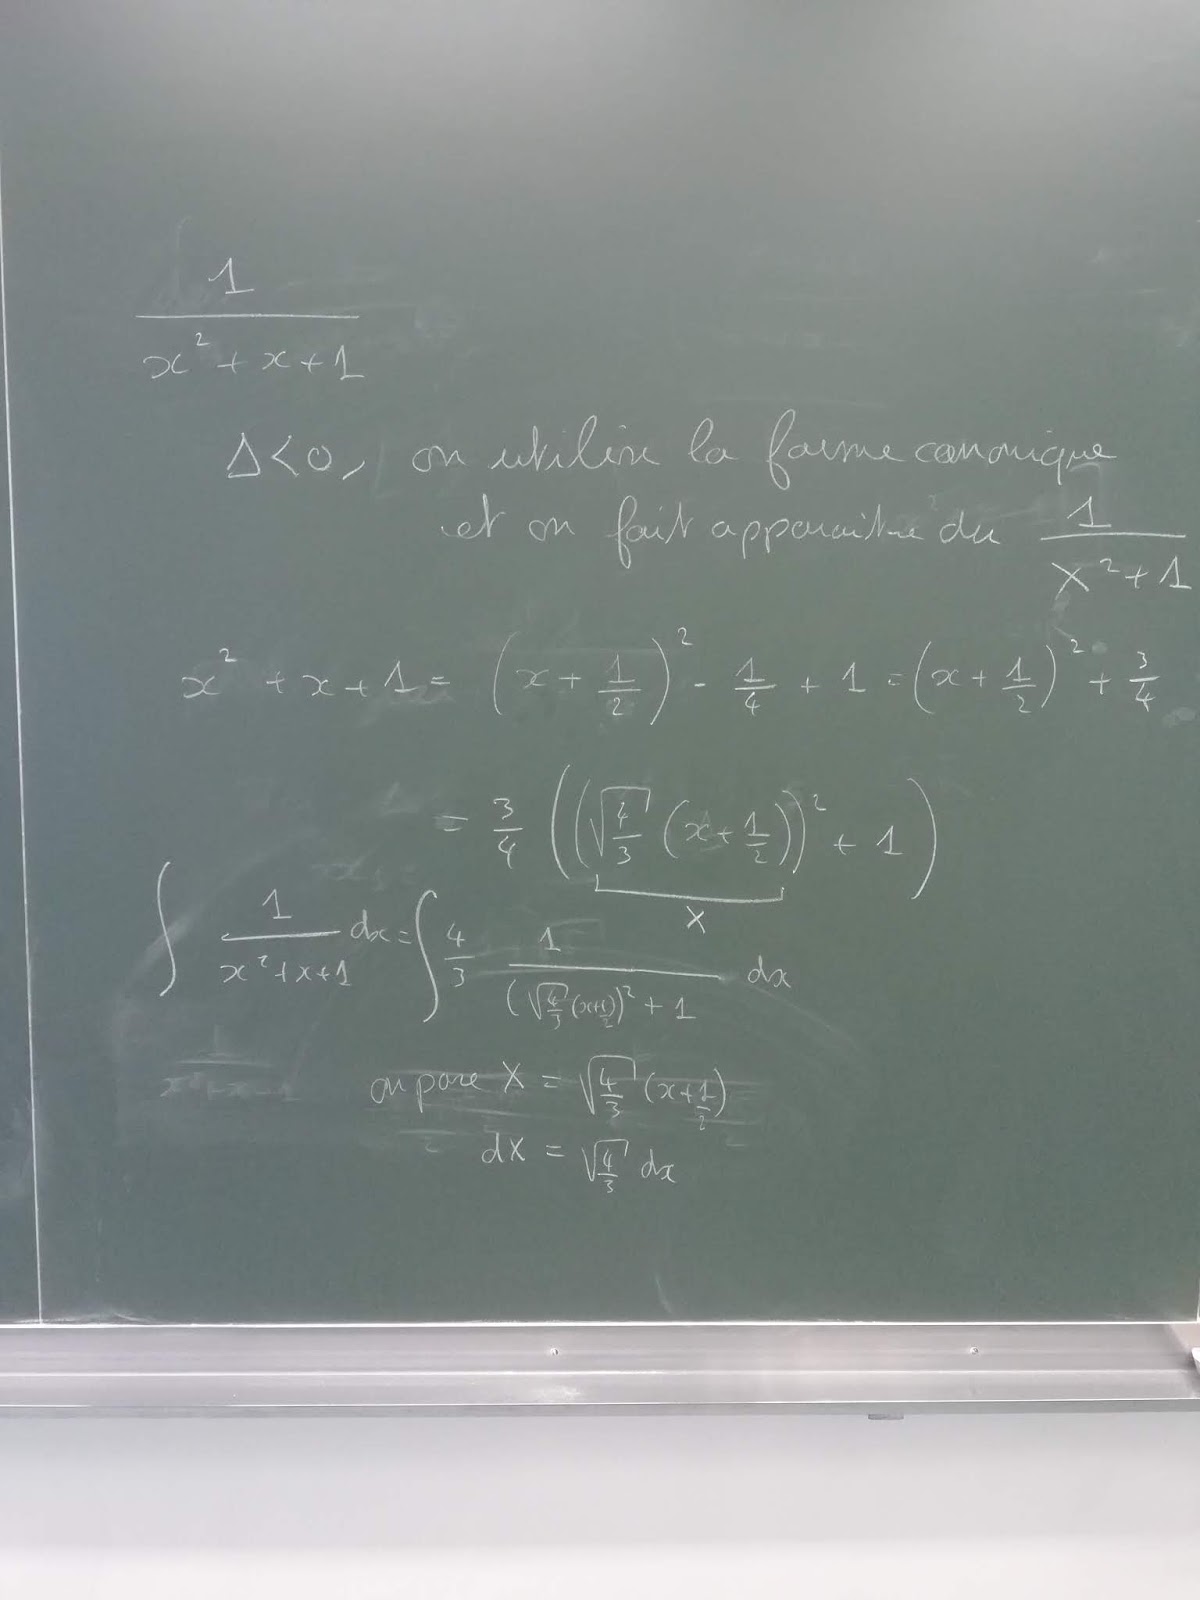 1/(x² + x + 1)
Δ<0, on utilise la forme canonique
et on fait apparaitre du 1/(X² + 1)
x² + x + 1 = (x + 1/2)² - 1/4 + 1 = (x + 1/2)² + 3/4
= 3/4 ((√(4/3) (x + 1/2))² + 1)
X
∫ 1/(x² + x + 1) dx = ∫ 4/3 1/((√(4/3) (x + 1/2))² + 1) dx
on pose X = √(4/3) (x + 1/2)
dX = √(4/3) dx